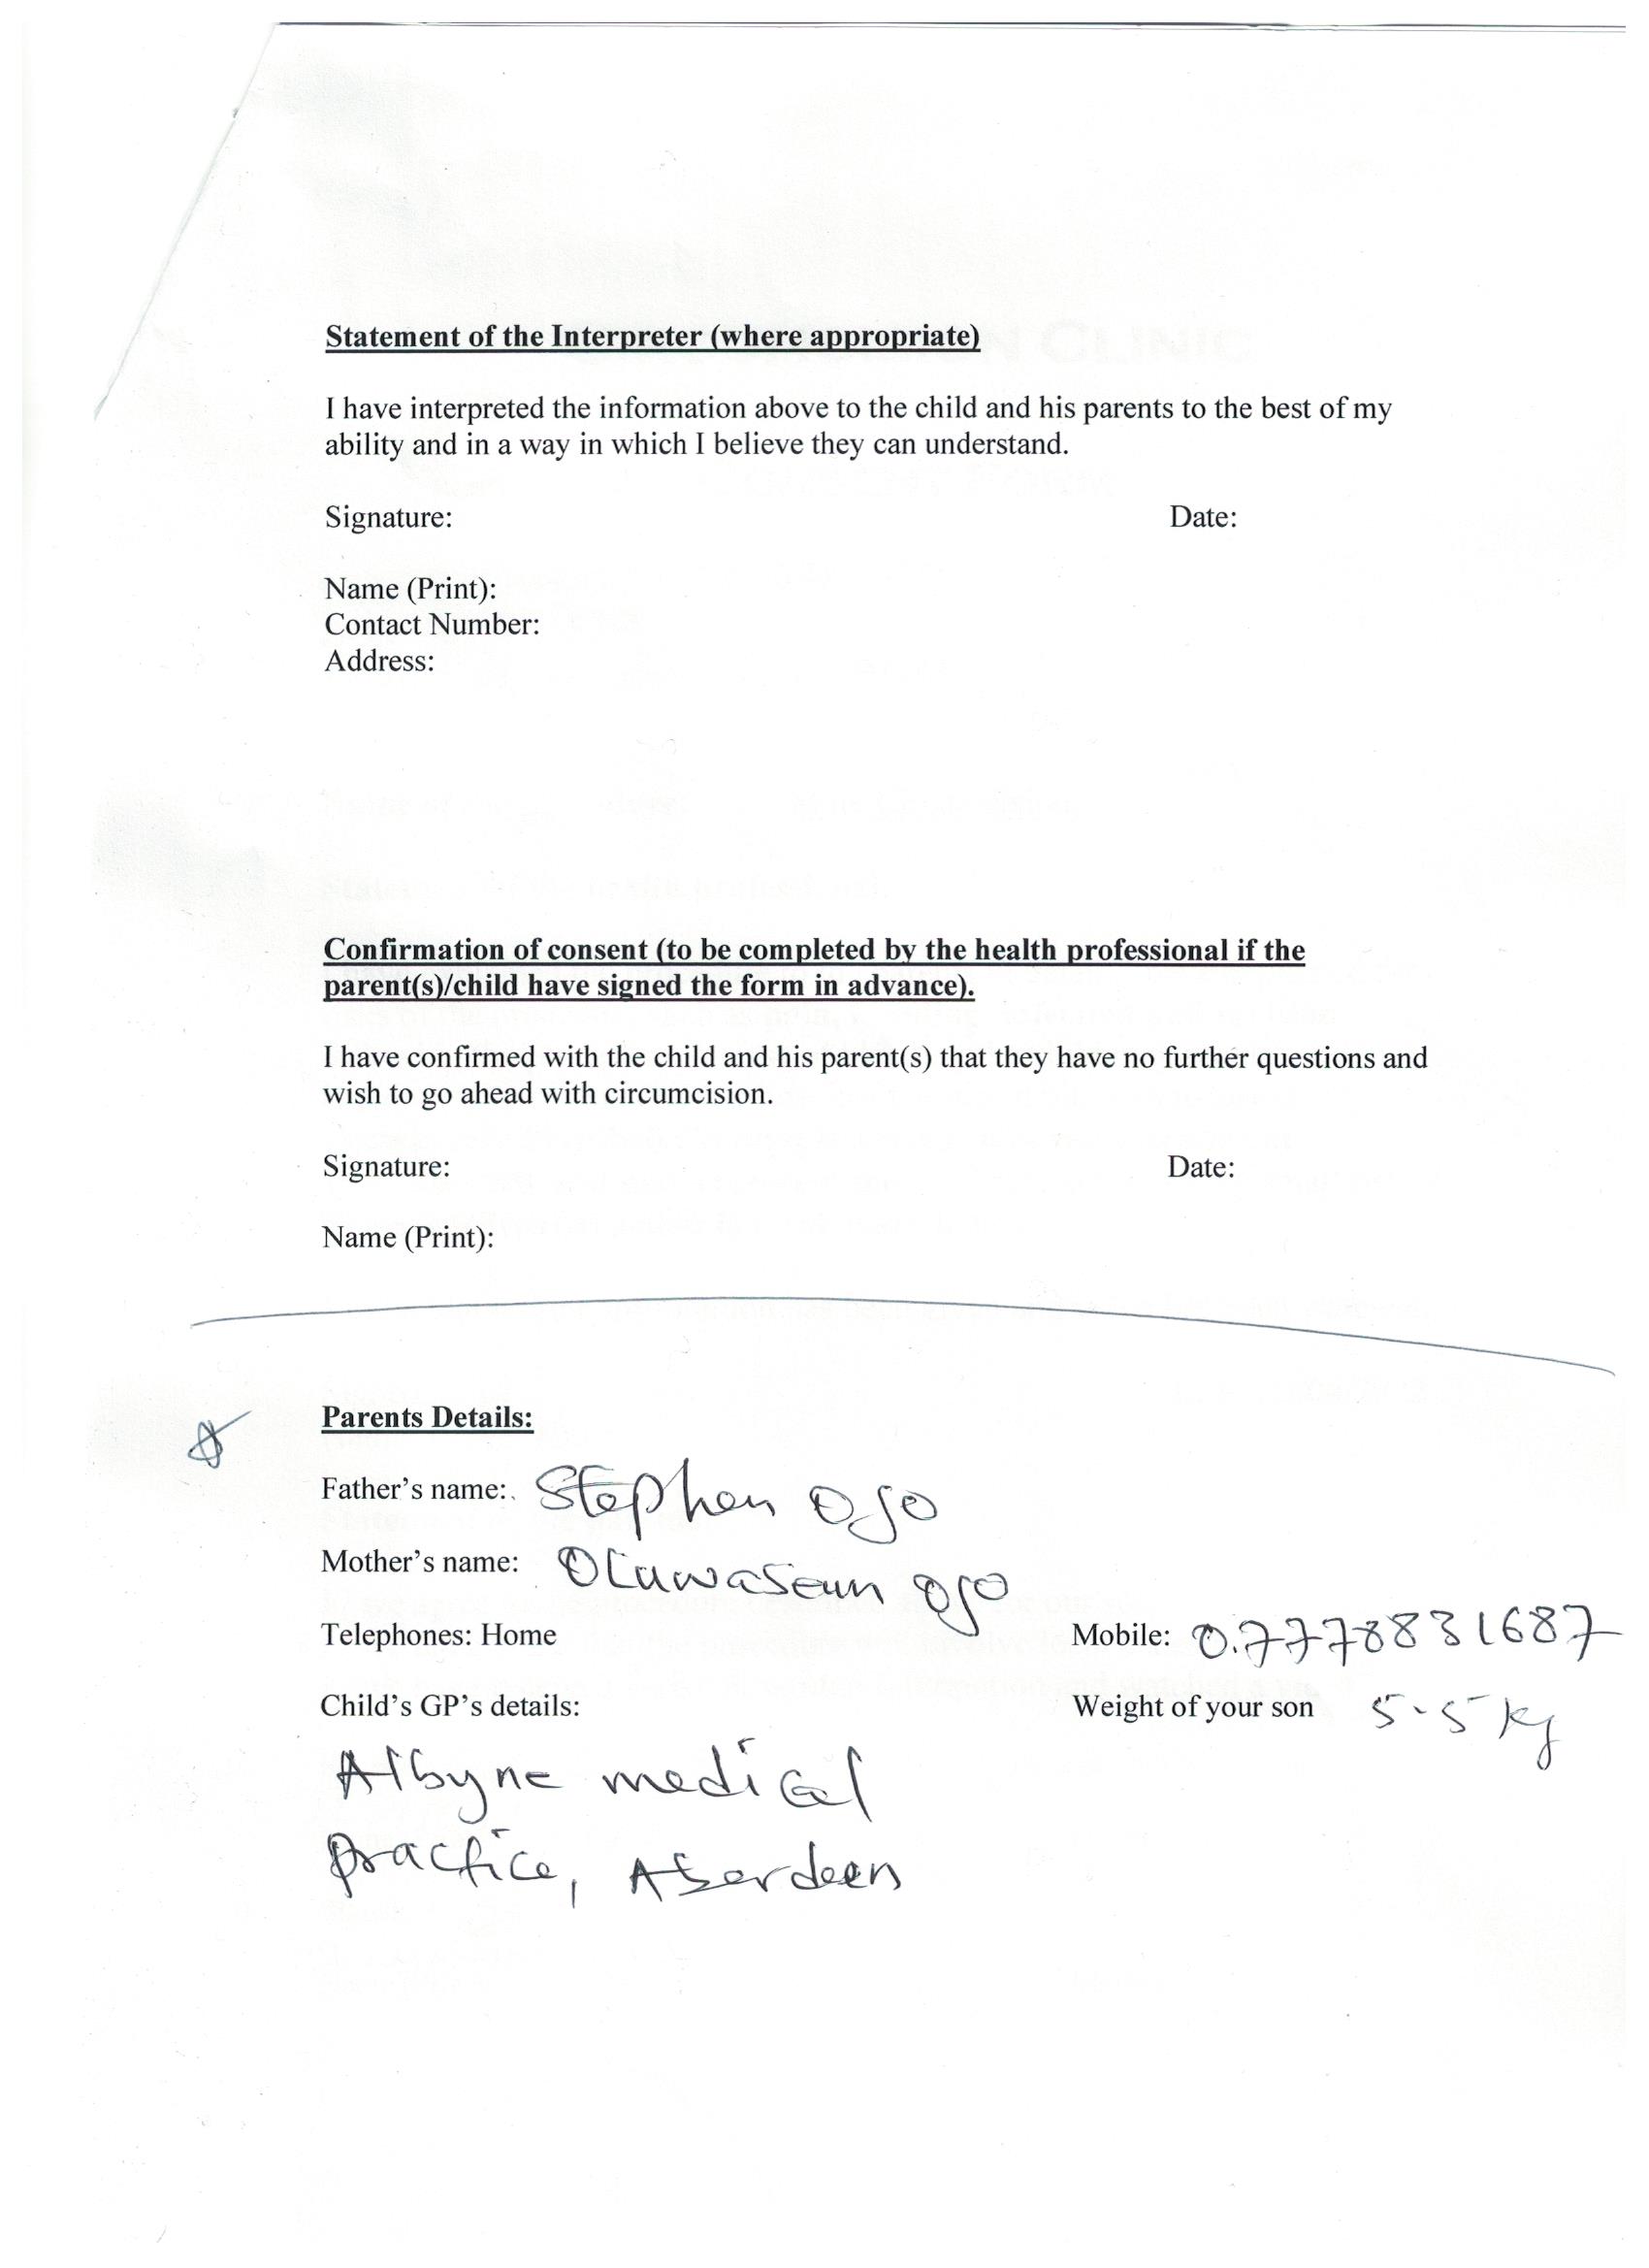 Statement of the Interpreter (where appropriate)
I have interpreted the information above to the child and his parents to the best of my
ability and in a way in which I believe they can understand.
Signature: Date:
Name (Print):
Contact Number:
Address:
Confirmation of consent (to be completed by the health professional if the
parent(s)/child have signed the form in advance).
I have confirmed with the child and his parent(s) that they have no further questions and
wish to go ahead with circumcision.
Signature: Date:
Name (Print):
Parents Details:
Father's name: Stephen Ojo
Mother's name: Oluwaseun Ojo
Telephones: Home Mobile: 07778831687
Child's GP's details: Weight of your son 5.5kg
Albyne medical
practice, Aberdeen